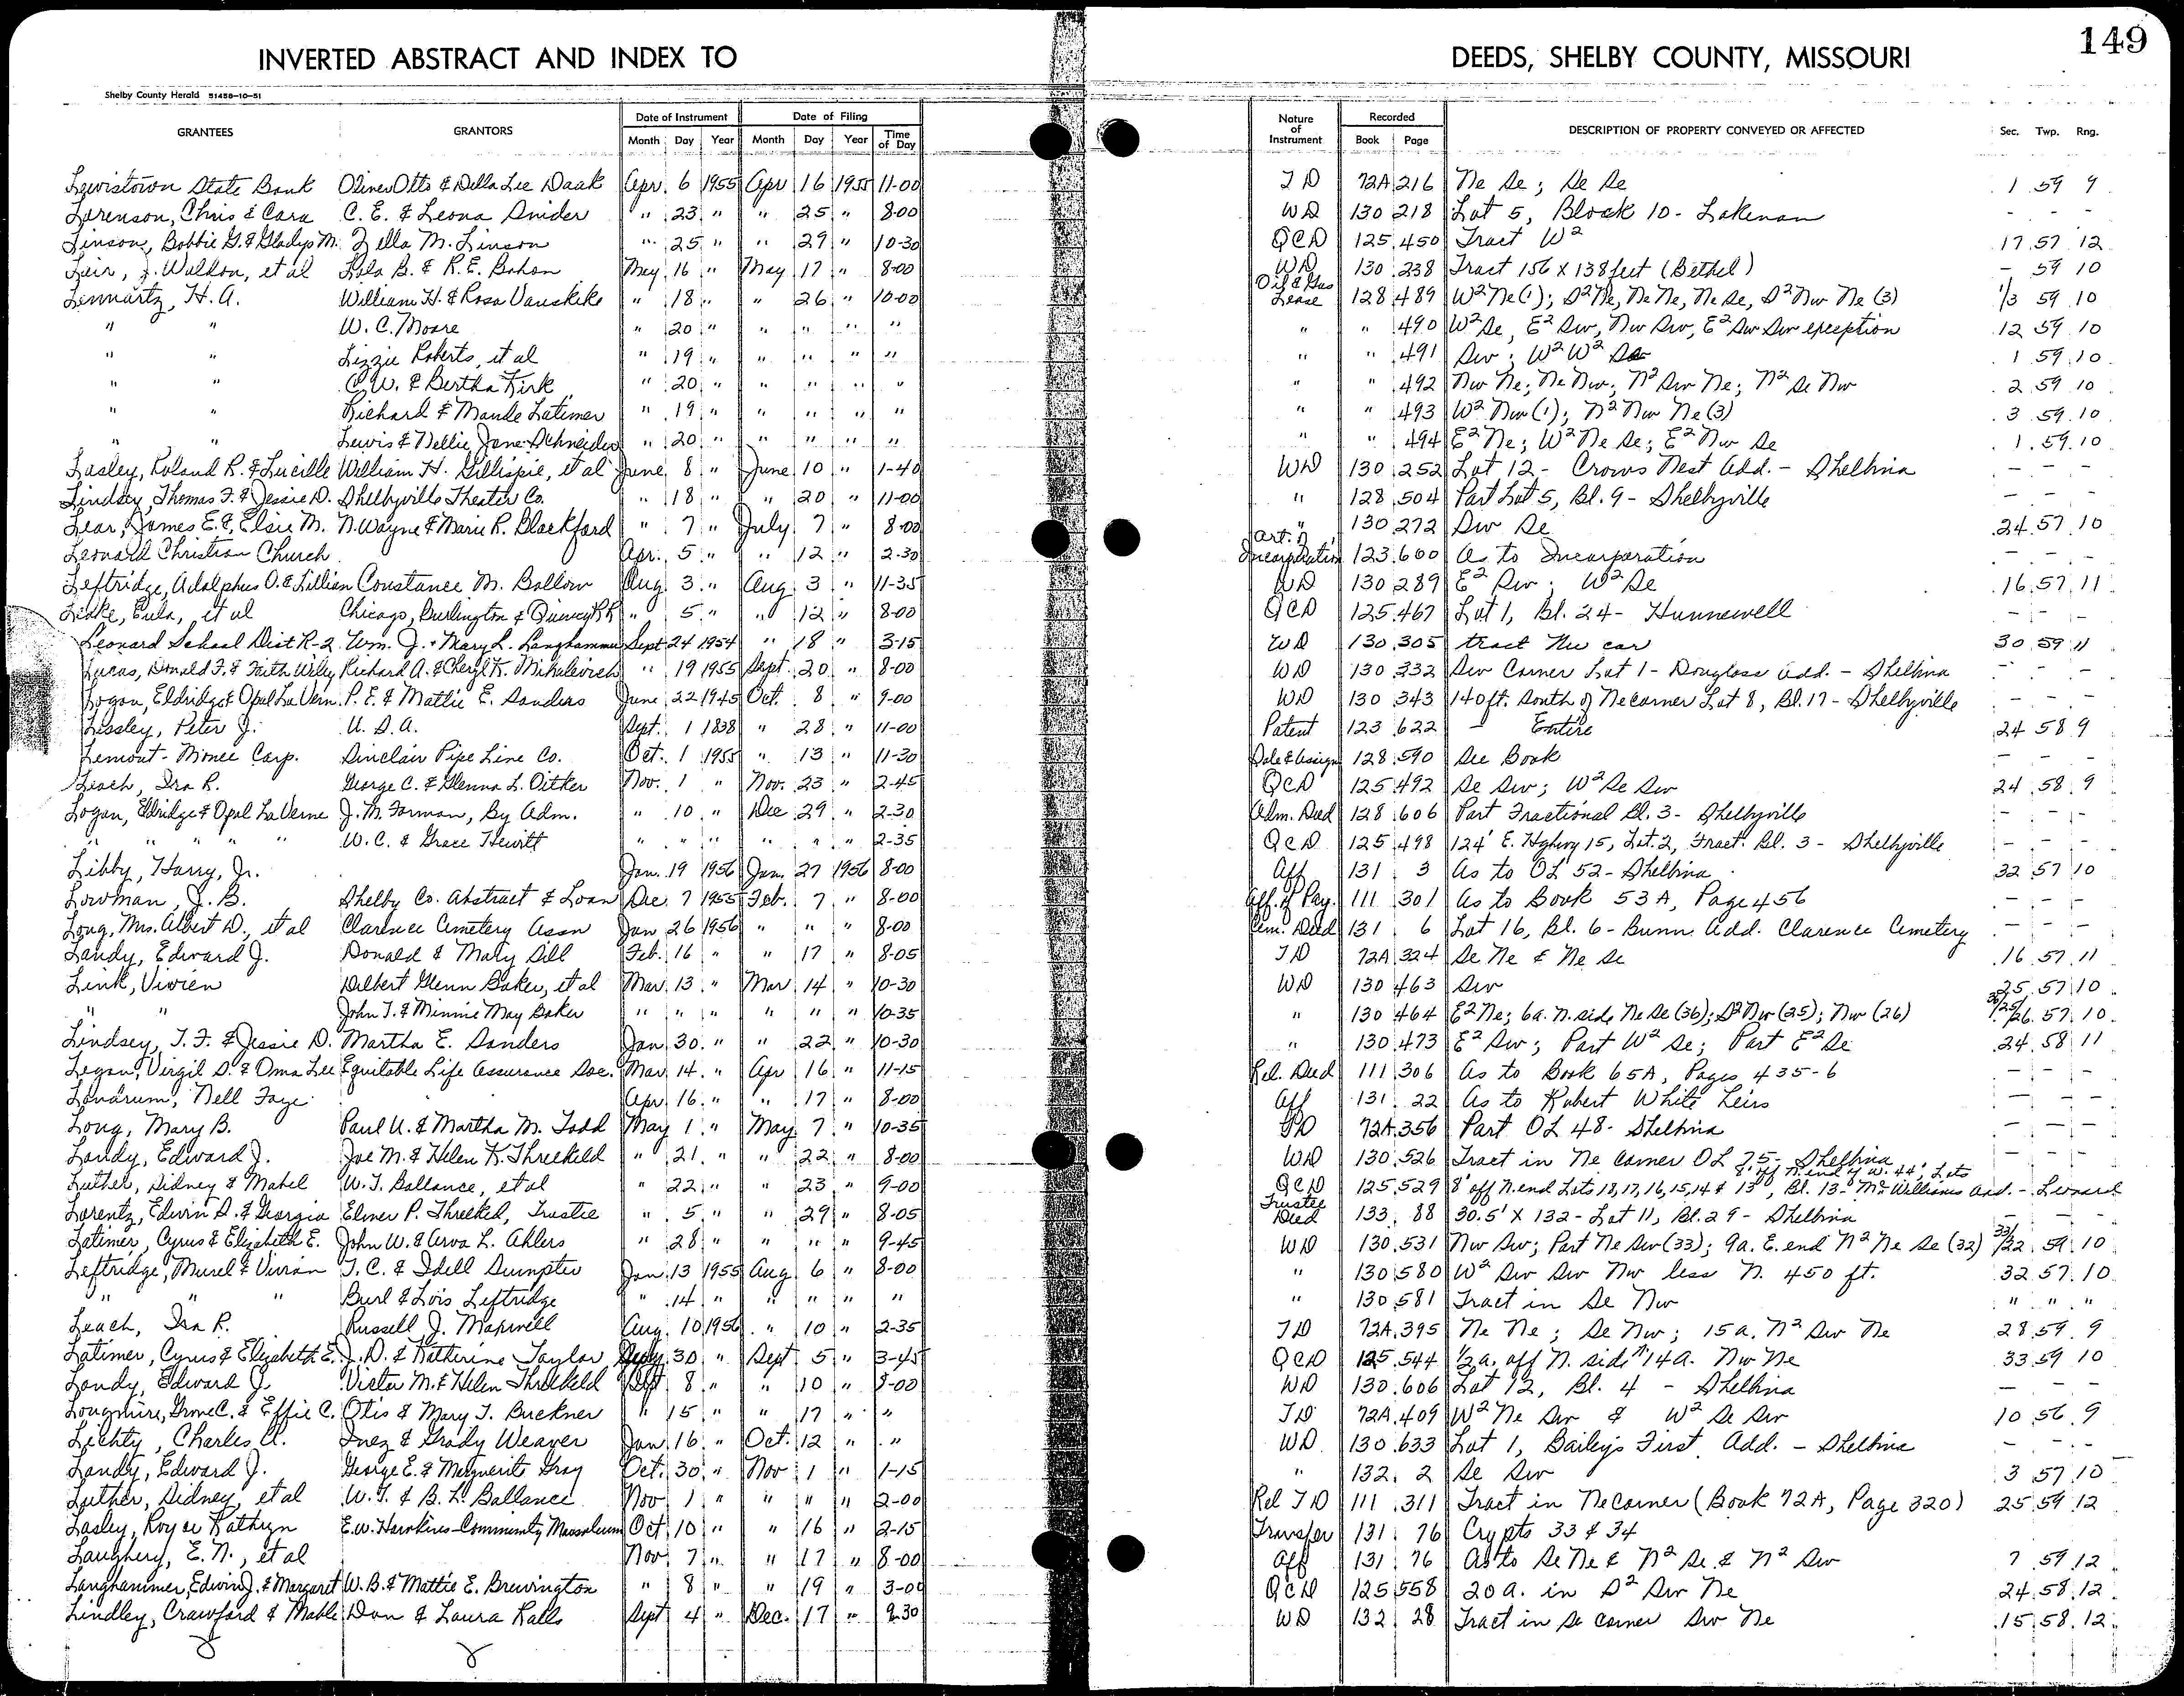 149
INVERTED ABSTRACT AND INDEX TO DEEDS, SHELBY COUNTY, MISSOURI
Shelby County Herald 51458-10-51
GRANTEES GRANTORS Date of Instrument Date of Filing Nature of Instrument Recorded DESCRIPTION OF PROPERTY CONVEYED OR AFFECTED Sec. Twp. Rng.
Month Day Year Month Day Year Time of Day Book Page
Lewistown State Bank Oliver Otto & Della Lee Daak Apr. 6 1955 Apr 16 1955 11-00 T D 72A 216 Ne Se; Se Se 1 59 9
Lorenson, Chris & Cara C. E. & Leona Snider " 23 " " 25 " 8-00 WD 130 218 Lot 5, Block 10 - Lakenan - - -
Linson, Bobbie G. & Gladys M. Zella M. Linson " 25 " " 29 " 10-30 QCD 125 450 Tract W² 17 57 12
Leir, J. Waldon, et al Lola B. & R. E. Bohon May 16 " May 17 " 8-00 WD 130 238 Tract 156 X 138 feet (Bethel) - 59 10
Lennartz, H. A. William H. & Rosa Vanskike " 18 " " 26 " 10-00 Oil & Gas Lease 128 489 W² Ne (1); S² Ne, Ne Ne, Ne Se, S² Nw Ne (3) 1/3 59 10
" " W. C. Moore " 20 " " " " " " " 490 W² Se, E² Sw, Nw Sw, E² Sw Sw exception 12 59 10
" " Lizzie Roberts, et al " 19 " " " " " " " 491 Sw; W² W² Se 1 59 10
" " C. W. & Bertha Kirk " 20 " " " " " " " 492 Nw Ne; Ne Nw; N² Sw Ne; N² Se Nw 2 59 10
" " Richard & Maude Latimer " 19 " " " " " " " 493 W² Nw (1); N² Nw Ne (3) 3 59 10
" " Lewis & Nellie Jane Schneider " 20 " " " " " " " 494 E² Ne; W² Ne Se; E² Nw Se 1 59 10
Lasley, Roland R. & Lucille William H. Gillispie, et al June 8 " June 10 " 1-40 WD 130 252 Lot 12 - Crows Nest Add. - Shelbina - - -
Lindsey, Thomas F. & Jessie D. Shelbyville Theater Co. " 18 " " 20 " 11-00 " 128 504 Part Lot 5, Bl. 9 - Shelbyville - - -
Lear, James E. & Elsie M. N. Wayne & Marie R. Blackford " 7 " July 7 " 8-00 " 130 272 Sw Se 24 57 10
Leonard Christian Church Apr. 5 " " 12 " 2-30 Art. of Incorporation 123 600 As to Incorporation - - -
Leftridge, Adolphus O. & Lillian Constance M. Ballow Aug. 3 " Aug 3 " 11-35 WD 130 289 E² Sw; W² Se 16 57 11
Liske, Eula, et al Chicago, Burlington & Quincy RR " 5 " " 12 " 8-00 QCD 125 467 Lot 1, Bl. 24 - Hunnewell - - -
Leonard School Dist R-2 Wm. J. & Mary L. Langhammer Sept 24 1954 " 18 " 3-15 WD 130 305 tract Nw cor 30 59 11
Lucas, Donald F. & Faith Willy Richard A. & Cheryl K. Mihalevich " 19 1955 Sept. 20 " 8-00 WD 130 332 Sw Corner Lot 1 - Douglass Add. - Shelbina - - -
Logan, Eldridge & Opal La Vern. P. E. & Mattie E. Sanders June 22 1945 Oct. 8 " 9-00 WD 130 343 140 ft. South of Ne corner Lot 8, Bl. 17 - Shelbyville - - -
Lessley, Peter J. U. S. A. Sept. 1 1838 " 28 " 11-00 Patent 123 622 - Entire 24 58 9
Lemont-Monee Corp. Sinclair Pipe Line Co. Oct. 1 1955 " 13 " 11-30 Sale & Assign 128 590 See Book - - -
Leach, Ira R. George C. & Glenna L. Oitker Nov. 1 " Nov. 23 " 2-45 QCD 125 492 Se Sw; W² Se Sw 24 58 9
Logan, Eldridge & Opal La Verne J. M. Forman, By Adm. " 10 " Dec 29 " 2-30 Adm. Deed 128 606 Part Fractional Bl. 3 - Shelbyville - - -
" " " " W. C. & Grace Hewitt " " " " " " 2-35 QCD 125 498 124' E. Highway 15, Lot 2, Fract. Bl. 3 - Shelbyville - - -
Libby, Harry, Jr. Jan. 19 1956 Jan. 27 1956 8-00 Aff 131 3 As to OL 52 - Shelbina 32 57 10
Lowman, J. B. Shelby Co. Abstract & Loan Dec. 7 1955 Feb. 7 " 8-00 Aff. of Pay. 111 301 As to Book 53 A, Page 456 - - -
Long, Mrs. Albert D., et al Clarence Cemetery Assn Jan 26 1956 " " " 8-00 Cem. Deed 131 6 Lot 16, Bl. 6 - Bunn. Add. Clarence Cemetery - - -
Landy, Edward J. Donald & Mary Dill Feb. 16 " " 17 " 8-05 T D 72A 324 Se Ne & Ne Se 16 57 11
Link, Vivien Delbert Glenn Baker, et al Mar. 13 " Mar 14 " 10-30 WD 130 463 Sw 25 57 10
" " John T. & Minnie May Baker " " " " " " 10-35 " 130 464 E² Ne; 6a. N. side Ne Se (36); S² Nw (25); Nw (26) 36/25/26 57 10
Lindsey, T. F. & Jessie D. Martha E. Sanders Jan 30 " " 22 " 10-30 " 130 473 E² Sw; Part W² Se; Part E² Se 24 58 11
Logan, Virgil D. & Oma Lee Equitable Life Assurance Soc. Mar. 14 " Apr 16 " 11-15 Rel. Deed 111 306 As to Book 65A, Pages 435-6 - - -
Landrum, Nell Faye Apr. 16 " " 17 " 8-00 Aff 131 22 As to Robert White Heirs - - -
Long, Mary B. Paul U. & Martha M. Todd May 1 " May 7 " 10-35 TD 72A 356 Part OL 48 - Shelbina - - -
Landy, Edward J. Joe M. & Helen K. Threlkeld " 21 " " 22 " 8-00 WD 130 526 Tract in Ne corner OL 75 - Shelbina - - -
Luther, Sidney & Mabel W. T. Ballance, et al " 22 " " 23 " 9-00 QCD 125 529 8' off N. end Lots 18, 17, 16, 15, 14 & 13, 8' off N. end of W. 44', Lots Bl. 13 - McWilliams Add. - Leonard
Lorentz, Edwin D. & Georgia Elmer P. Threlkeld, Trustee " 5 " " 29 " 8-05 Trustee Deed 133 88 30.5' X 132 - Lot 11, Bl. 29 - Shelbina - - -
Latimer, Cyrus & Elizabeth E. John W. & Arva L. Ahlers " 28 " " " " 9-45 WD 130 531 Nw Sw; Part Ne Sw (33); 9a. E. end N² Ne Se (32) 33/32 59 10
Leftridge, Murel & Vivian T. C. & Idell Sumpter Jan. 13 1955 Aug 6 " 8-00 " 130 580 W² Sw Sw Nw less N. 450 ft. 32 57 10
" " " Burl & Lois Leftridge " 14 " " " " " " 130 581 Tract in Se Nw " " "
Leach, Ira R. Russell J. Maxwell Aug. 10 1956 " 10 " 2-35 T D 72A 395 Ne Ne; Se Nw; 15a. N² Sw Ne 28 59 9
Latimer, Cyrus & Elizabeth E. J. D. & Katherine Taylor 30 " Sept 5 " 3-45 QCD 125 544 ½a. off N. side 14a. Nw Ne 33 59 10
Landy, Edward J. Victor M. & Helen Threlkeld Sept 8 " " 10 " 8-00 WD 130 606 Lot 12, Bl. 4 - Shelbina - - -
Longmire, Grove C. & Effie C. Otis & Mary J. Buckner " 15 " " 17 " " T D 72A 409 W² Ne Sw & W² Se Sw 10 56 9
Lichty, Charles A. Inez & Grady Weaver Jan 16 " Oct. 12 " " WD 130 633 Lot 1, Baileys First Add. - Shelbina - - -
Landy, Edward J. George E. & Marguerite Gray Oct. 30 " Nov 1 " 1-15 " 132 2 Se Sw 3 57 10
Luther, Sidney, et al W. T. & B. L. Ballance Nov 1 " " " " 2-00 Rel T D 111 311 Tract in Ne corner (Book 72A, Page 320) 25 59 12
Lasley, Roy or Kathryn E. W. Hawkins - Community Mausoleum Oct 10 " " 16 " 2-15 Transfer 131 76 Crypts 33 & 34
Laughery, E. N., et al Nov 7 " " 17 " 8-00 Aff 131 76 As to Se Ne & N² Se & N² Sw 7 59 12
Langhammer, Edwin J. & Margaret W. B. & Mattie E. Brewington " 8 " " 19 " 3-00 QCD 125 558 20a. in S² Sw Ne 24 58 12
Lindley, Crawford & Mable Don & Laura Ralls Sept 4 " Dec. 17 " 9-30 WD 132 28 Tract in Se corner Sw Ne 15 58 12